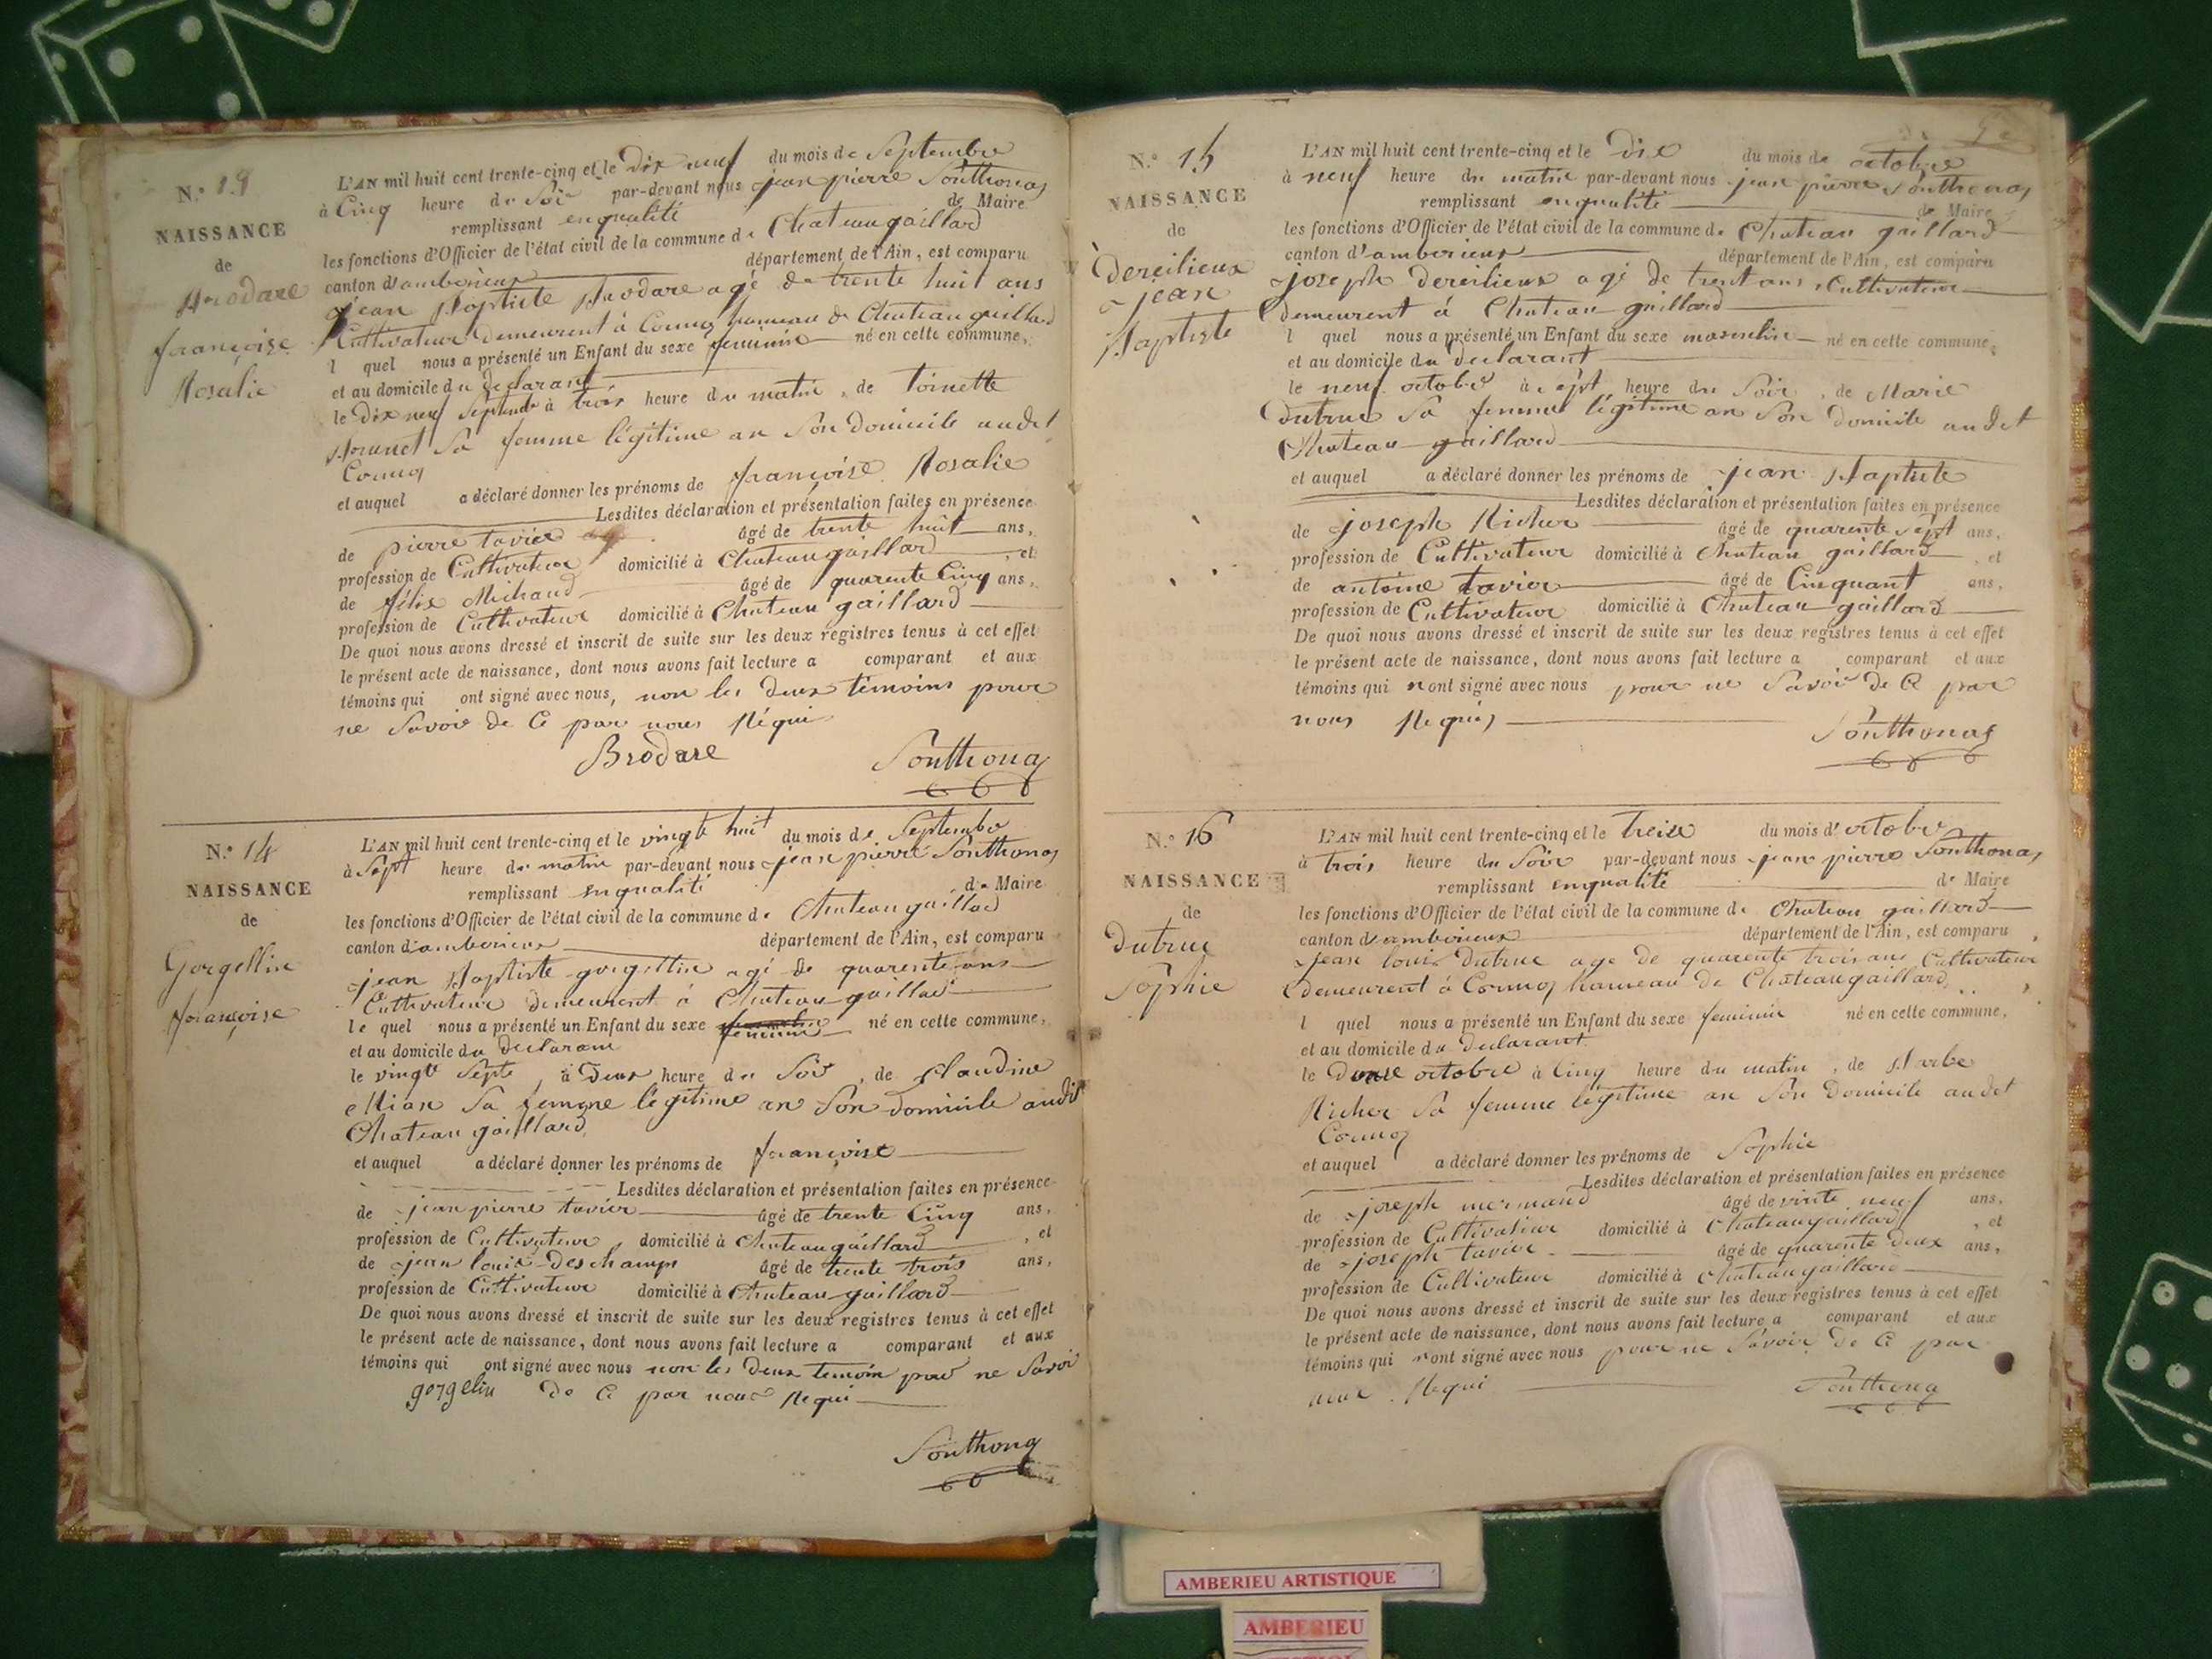 N.° 13
NAISSANCE
de
Brodare
françoise
Rosalie
L'AN mil huit cent trente-cinq et le Dix neuf du mois de Septembre
à Cinq heure du Soir par-devant nous jean pierre Sonthonas
remplissant enqualité de Maire
les fonctions d'Officier de l'état civil de la commune de Chateaugaillard
canton d'amberieux département de l'Ain, est comparu
jean Baptiste Brodare agé de trente huit ans
Cultivateur demeurent à Cormoz hameau de Chateaugaillard
l quel nous a présenté un Enfant du sexe feminin né en cette commune,
et au domicile du declarant
le Dix neuf Septembre à trois heure du matin, de Toinette
Brunet Sa femme légitime an Son domicile audet
Cormoz
et auquel a déclaré donner les prénoms de françoise Rosalie
Lesdites déclaration et présentation faites en présence
de pierre tavier âgé de trente huit ans,
profession de Cultivateur domicilié à Chateaugaillard, et
de félix Michaud âgé de quarente Cinq ans,
profession de Cultivateur domicilié à Chateau gaillard
De quoi nous avons dressé et inscrit de suite sur les deux registres tenus à cet effet
le présent acte de naissance, dont nous avons fait lecture a comparant et aux
témoins qui ont signé avec nous, non les deux témoins pour
ne Savoir de Ce par nous Réqui
Brodare Sonthonas
N.° 14
NAISSANCE
de
Gorgellin
françoise
L'AN mil huit cent trente-cinq et le vingt huit du mois de Septembre
à Sept heure du matin par-devant nous jean pierre Sonthonas
remplissant enqualité de Maire
les fonctions d'Officier de l'état civil de la commune de Chateaugaillard
canton d'amberieux département de l'Ain, est comparu
jean Baptiste gorgellin agé de quarente ans
Cultivateur demeurent à Chateau gaillard
le quel nous a présenté un Enfant du sexe feminin né en cette commune,
et au domicile du declarant
le vingt Septe, à Deux heure du Soir, de Claudine
Mian Sa femme légitime an Son domicile audit
Chateau gaillard
et auquel a déclaré donner les prénoms de françoise
Lesdites déclaration et présentation faites en présence
de jean pierre tavier âgé de trente Cinq ans,
profession de Cultivateur, domicilié à Chateaugaillard, et
de jean louis Deschamps âgé de trente trois ans,
profession de Cultivateur domicilié à Chateau gaillard
De quoi nous avons dressé et inscrit de suite sur les deux registres tenus à cet effet
le présent acte de naissance, dont nous avons fait lecture a comparant et aux
témoins qui ont signé avec nous non les Deux temoin pour ne Savoir
gorgelin de Ce par nous Requi
Sonthonas
N.° 15
NAISSANCE
de
Dereilieux
jean
Baptiste
L'AN mil huit cent trente-cinq et le Dix du mois de octobre
à neuf heure du matin par-devant nous jean pierre Sonthonas
remplissant enqualité de Maire
les fonctions d'Officier de l'état civil de la commune de Chateau gaillard
canton d'amberieux département de l'Ain, est comparu
joseph dereilieux agé de trent ans, Cultivateur
demeurent à Chateau gaillard
l quel nous a présenté un Enfant du sexe masculin né en cette commune,
et au domicile du declarant
le neuf octobre à Sept heure du Soir, de Marie
Dutruc Sa femme légitime an Son domicile audet
Chateau gaillard
et auquel a déclaré donner les prénoms de jean Baptiste
Lesdites déclaration et présentation faites en présence
de joseph Richer âgé de quarente sept ans,
profession de Cultivateur domicilié à Chateau gaillard, et
de antoine tavier âgé de Cinquant ans,
profession de Cultivateur domicilié à Chateau gaillard
De quoi nous avons dressé et inscrit de suite sur les deux registres tenus à cet effet
le présent acte de naissance, dont nous avons fait lecture a comparant et aux
témoins qui n'ont signé avec nous pour ne Savoir de Ce par
nous Requis
Sonthonas
N.° 16
NAISSANCE
de
Dutruc
Sophie
L'AN mil huit cent trente-cinq et le treize du mois d'octobre
à trois heure du Soir par-devant nous jean pierre Sonthonas
remplissant enqualité de Maire
les fonctions d'Officier de l'état civil de la commune de Chateau gaillard
canton d'amberieux département de l'Ain, est comparu
jean louis Dutruc age de quarente trois ans Cultivateur
demeurent à Cormoz hameau de Chateaugaillard
l quel nous a présenté un Enfant du sexe feminin né en cette commune,
et au domicile du declarant
le Douze octobre à Cinq heure du matin, de Barbe
Richer Sa femme légitime an Son Domicile audet
Cormoz
et auquel a déclaré donner les prénoms de Sophie
Lesdites déclaration et présentation faites en présence
de joseph mermand âgé de vinte neuf ans,
profession de Cultivateur domicilié à Chateaugaillard, et
de joseph tavier âgé de quarente deux ans,
profession de Cultivateur domicilié à Chateaugaillard
De quoi nous avons dressé et inscrit de suite sur les deux registres tenus à cet effet
le présent acte de naissance, dont nous avons fait lecture a comparant et aux
témoins qui n'ont signé avec nous pour ne Savoir de Ce par
nous Requi
Sonthonas
AMBERIEU ARTISTIQUE
AMBERIEU